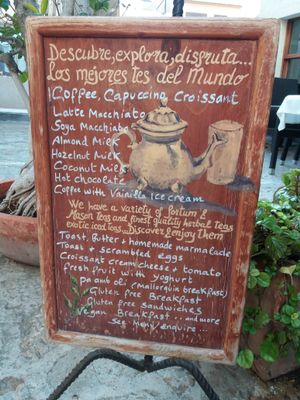 Descubre, explora, disfruta...
los mejores tes del Mundo
Coffee, Capuccino, Croissant
Latte Macchiato
Soya Macchiato
Almond Milk
Hazelnut Milk
Coconut Milk
Hot chocolate
Coffee with Vainilla Ice cream
We have a variety of Fortum &
Mason Teas and finest quality herbal Teas
exotic iced Teas...Discover & enjoy Them
Toast, Butter + homemade marmalade
Toast + scrambled eggs
Croissant Cream cheese + tomato
fresh fruit with yoghurt
pa amb oli (mallorquin breakfast)
Gluten free Breakfast
Gluten free sandwiches
Vegan Breakfast...and more
See Menu/enquire...